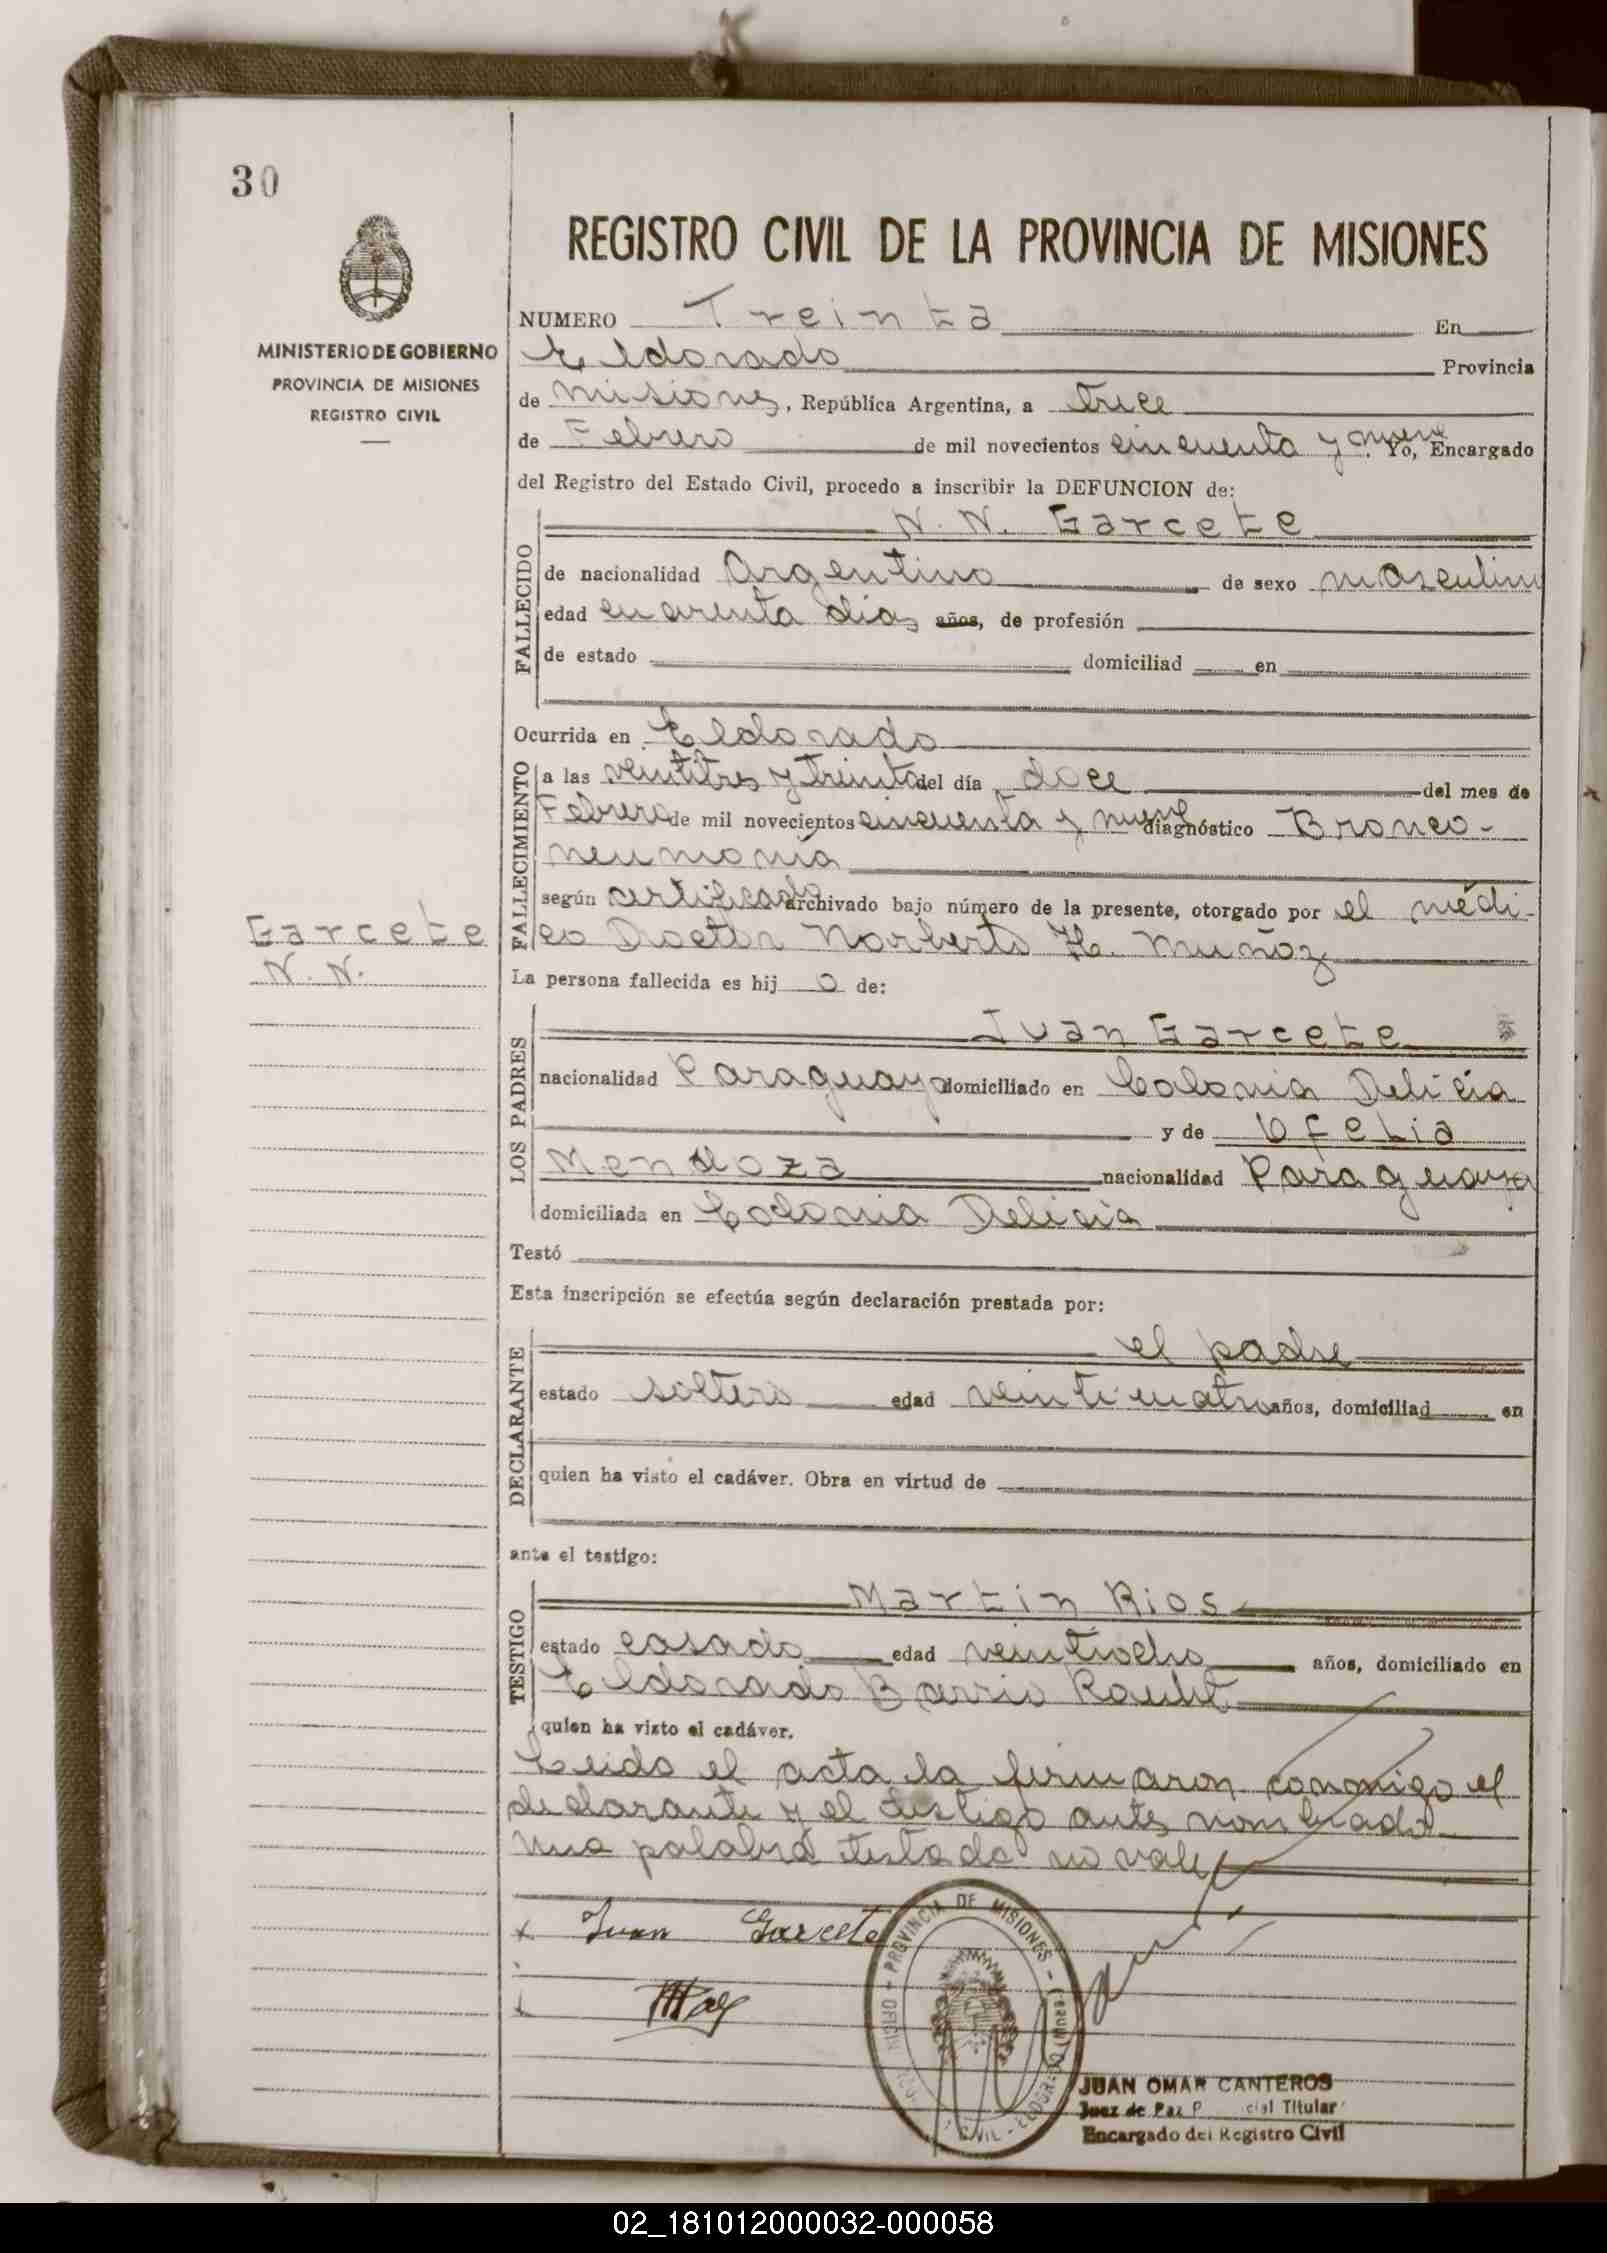 30
REGISTRO CIVIL DE LA PROVINCIA DE MISIONES
MINISTERIO DE GOBIERNO
PROVINCIA DE MISIONES
REGISTRO CIVIL
NUMERO Treinta En
Eldorado Provincia
de misiones, República Argentina, a trece
de Febrero de mil novecientos cincuenta y nueve. Yo, Encargado
del Registro del Estado Civil, procedo a inscribir la DEFUNCION de:
FALLECIDO
N. N. Garcete
de nacionalidad Argentino de sexo masculino
edad cuarenta dias años, de profesión
de estado domiciliad en
Ocurrida en Eldorado
FALLECIMIENTO
a las veintitres y treinta del día doce del mes de
Febrero de mil novecientos cincuenta y nueve diagnóstico Bronco-
neumonia
según certificado archivado bajo número de la presente, otorgado por el médi-
co Doctor Norberto H. Muñoz
Garcete
N. N.
La persona fallecida es hij o de:
LOS PADRES
Juan Garcete
nacionalidad Paraguayo domiciliado en Colonia Delicia
y de Ofelia
Mendoza nacionalidad Paraguaya
domiciliada en Colonia Delicia
Testó
Esta inscripción se efectúa según declaración prestada por:
DECLARANTE
el padre
estado soltero edad veinticuatro años, domiciliad en
quien ha visto el cadáver. Obra en virtud de
ante el testigo:
TESTIGO
Martin Rios
estado casado edad veintiocho años, domiciliado en
Eldorado Barrio
quien ha visto el cadáver.
Leido el acta la firmaron conmigo el
declarante y el testigo antes nombrado
una palabra testada no vale
x Juan Garcete
PROVINCIA DE MISIONES
JUAN OMAR CANTEROS
Juez de Paz Titular
Encargado del Registro Civil
02_181012000032-000058